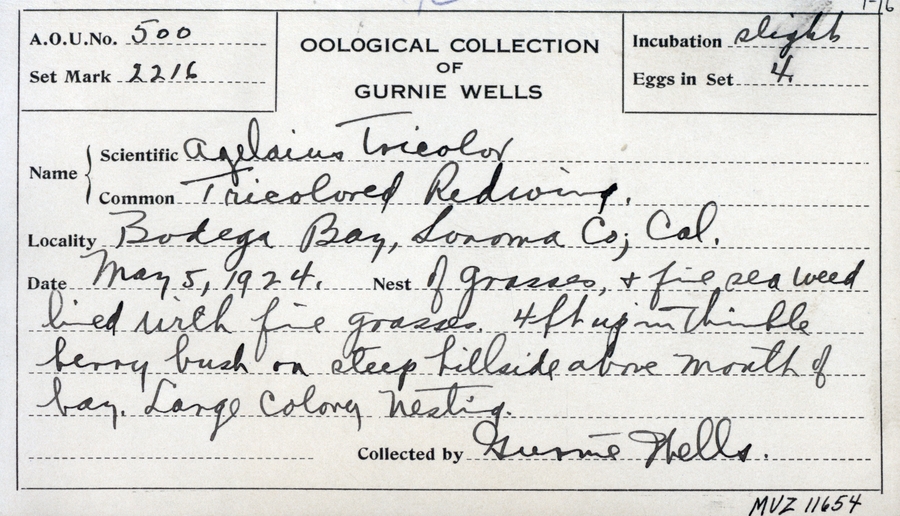 1-16
A.O.U.No. 500
Set Mark 2216
OOLOGICAL COLLECTION
OF
GURNIE WELLS
Incubation slight
Eggs in Set 4
Name
Scientific Agelaius Tricolor
Common Tricolored Redwing.
Locality Bodega Bay, Sonoma Co; Cal.
Date May 5, 1924. Nest of grasses, & fine sea weed
lined with fine grasses. 4ft up in Thimble
berry bush on steep hillside above mouth of
bay. Large Colony Nesting.
Collected by Gurnie Wells.
MVZ 11654